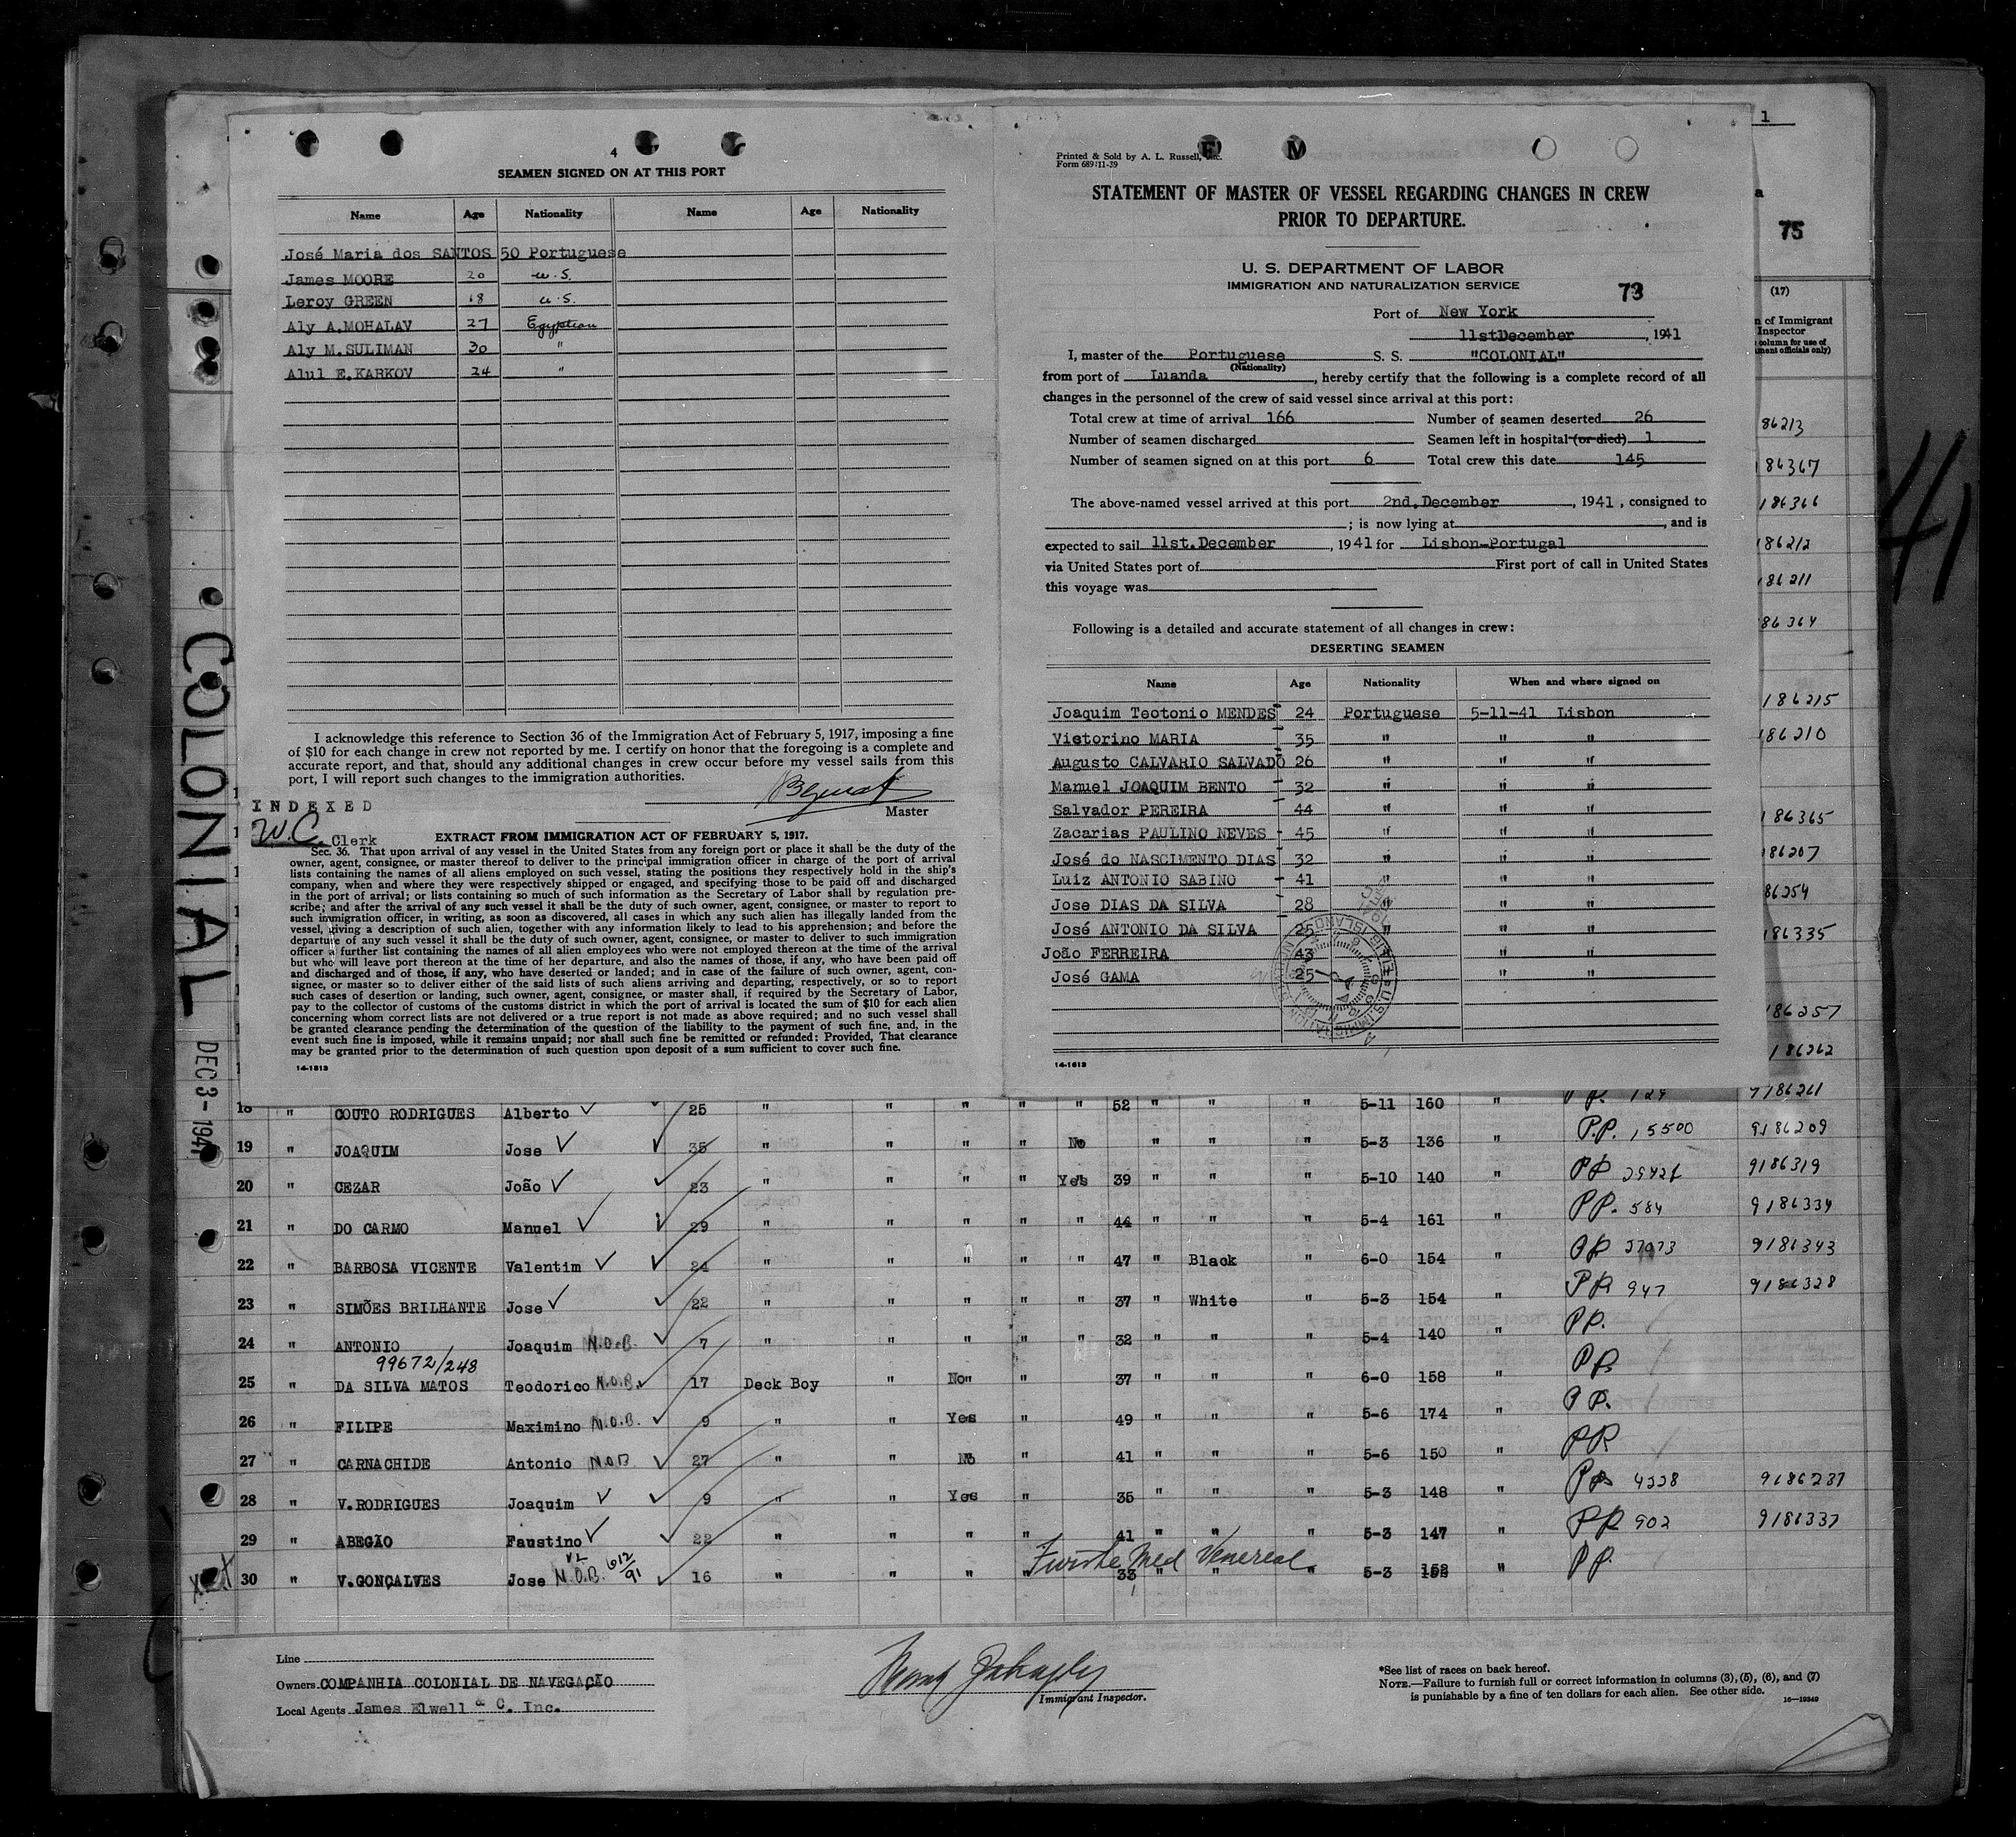 4
SEAMEN SIGNED ON AT THIS PORT
Name Age Nationality Name Age Nationality
José Maria dos SANTOS 50 Portuguese
James MOORE 20 u.S.
Leroy GREEN 18 u.S.
Aly A.MOHALAV 27 Egyptian
Aly M.SULIMAN 30 "
Alul E.KARKOV 24 "
I acknowledge this reference to Section 36 of the Immigration Act of February 5, 1917, imposing a fine
of $10 for each change in crew not reported by me. I certify on honor that the foregoing is a complete and
accurate report, and that, should any additional changes in crew occur before my vessel sails from this
port, I will report such changes to the immigration authorities.
Master
INDEXED
W.C. Clerk
EXTRACT FROM IMMIGRATION ACT OF FEBRUARY 5, 1917.
Sec. 36. That upon arrival of any vessel in the United States from any foreign port or place it shall be the duty of the
owner, agent, consignee, or master thereof to deliver to the principal immigration officer in charge of the port of arrival
lists containing the names of all aliens employed on such vessel, stating the positions they respectively hold in the ship's
company, when and where they were respectively shipped or engaged, and specifying those to be paid off and discharged
in the port of arrival; or lists containing so much of such information as the Secretary of Labor shall by regulation pre-
scribe; and after the arrival of any such vessel it shall be the duty of such owner, agent, consignee, or master to report to
such immigration officer, in writing, as soon as discovered, all cases in which any such alien has illegally landed from the
vessel, giving a description of such alien, together with any information likely to lead to his apprehension; and before the
departure of any such vessel it shall be the duty of such owner, agent, consignee, or master to deliver to such immigration
officer a further list containing the names of all alien employees who were not employed thereon at the time of the arrival
but who will leave port thereon at the time of her departure, and also the names of those, if any, who have been paid off
and discharged and of those, if any, who have deserted or landed; and in case of the failure of such owner, agent, con-
signee, or master so to deliver either of the said lists of such aliens arriving and departing, respectively, or so to report
such cases of desertion or landing, such owner, agent, consignee, or master shall, if required by the Secretary of Labor,
pay to the collector of customs of the customs district in which the port of arrival is located the sum of $10 for each alien
concerning whom correct lists are not delivered or a true report is not made as above required; and no such vessel shall
be granted clearance pending the determination of the question of the liability to the payment of such fine, and, in the
event such fine is imposed, while it remains unpaid; nor shall such fine be remitted or refunded: Provided, That clearance
may be granted prior to the determination of such question upon deposit of a sum sufficient to cover such fine.
14-1613
Printed & Sold by A. L. Russell, Inc.
Form 689:11-39
F M
STATEMENT OF MASTER OF VESSEL REGARDING CHANGES IN CREW
PRIOR TO DEPARTURE.
U. S. DEPARTMENT OF LABOR
IMMIGRATION AND NATURALIZATION SERVICE
73
Port of New York
11stDecember , 1941
I, master of the Portuguese S. S. "COLONIAL"
(Nationality)
from port of Luanda , hereby certify that the following is a complete record of all
changes in the personnel of the crew of said vessel since arrival at this port:
Total crew at time of arrival 166 Number of seamen deserted 26
Number of seamen discharged Seamen left in hospital (or died) 1
Number of seamen signed on at this port 6 Total crew this date 145
The above-named vessel arrived at this port 2nd.December , 1941 , consigned to
; is now lying at , and is
expected to sail 11st.December , 1941 for Lisbon-Portugal
via United States port of First port of call in United States
this voyage was
Following is a detailed and accurate statement of all changes in crew:
DESERTING SEAMEN
Name Age Nationality When and where signed on
Joaquim Teotonio MENDES 24 Portuguese 5-11-41 Lisbon
Victorino MARIA 35 " " "
Augusto CALVARIO SALVADÔ 26 " " "
Manuel JOAQUIM BENTO 32 " " "
Salvador PEREIRA 44 " " "
Zacarias PAULINO NEVES 45 " " "
José do NASCIMENTO DIAS 32 " " "
Luiz ANTONIO SABINO 41 " " "
Jose DIAS DA SILVA 28 " " "
José ANTONIO DA SILVA 25 " " "
João FERREIRA 43 " "
José GAMA 25 " "
14-1613
1
75
(17)
of Immigrant
Inspector
column for use of
officials only)
86213
186367
186366
186212
186211
86364
186215
186210
186365
186207
86254
186335
186257
186262
41
COLONIAL
DEC 3-1941
18 " COUTO RODRIGUES Alberto 25 " " " " " 52 " " " 5-11 160 " 9186261
19 " JOAQUIM Jose 35 " " " " No " " " 5-3 136 " P.P. 15500 9186209
20 " CEZAR João 23 " " " " Yes 39 " " " 5-10 140 " PP 9186319
21 " DO CARMO Manuel 29 " " " " " 44 " " " 5-4 161 " PP. 584 9186334
22 " BARBOSA VICENTE Valentim 24 " " " " " 47 " Black " 6-0 154 " PP 9186343
23 " SIMÕES BRILHANTE Jose 22 " " " " " 37 " White " 5-3 154 " PP 947 9186328
24 " ANTONIO Joaquim N.O.B. 7 " " " " " 32 " " " 5-4 140 " PP.
99672/248
25 " DA SILVA MATOS Teodorico N.O.B. 17 Deck Boy " No" " 37 " " " 6-0 158 " PP
26 " FILIPE Maximino N.O.B. 9 " " Yes " 49 " " " 5-6 174 " PP.
27 " CARNACHIDE Antonio N.O.B 27 " " No " 41 " " " 5-6 150 " PP
28 " V.RODRIGUES Joaquim 9 " " Yes " 35 " " " 5-3 148 " PP 4228 9186237
29 " ABEGÃO Faustino 22 " " " " 41 " " " 5-3 147 " PP 902 9186337
30 " V.GONÇALVES Jose N.O.B. 612/91 16 " " " " 33 " " " 5-3 158 " PP.
Med Venereal
Line
Owners COMPANHIA COLONIAL DE NAVEGAÇÃO
Local Agents James Elwell & C. Inc.
Immigrant Inspector.
*See list of races on back hereof.
NOTE.—Failure to furnish full or correct information in columns (3), (5), (6), and (7)
is punishable by a fine of ten dollars for each alien. See other side.
16—19349